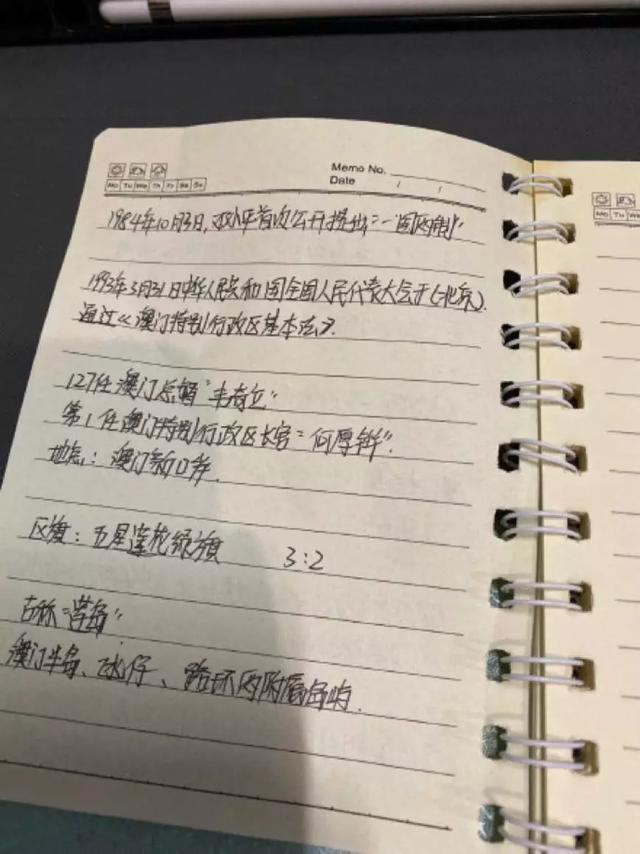 Memo No.
Mo Tu We Th Fr Sa Su
Date / /
1984年10月3日，邓小平首次公开提出："一国两制"
1993年3月31日中华人民共和国全国人民代表大会于(北京)
通过《澳门特别行政区基本法》.
127任澳门总督"韦奇立"
第1任澳门特别行政区长官："何厚铧".
地点：澳门新口岸.
区旗：五星莲花绿旗 3:2
古称"濠岛"
澳门半岛、氹仔、路环两附属岛屿.
Mo Tu We